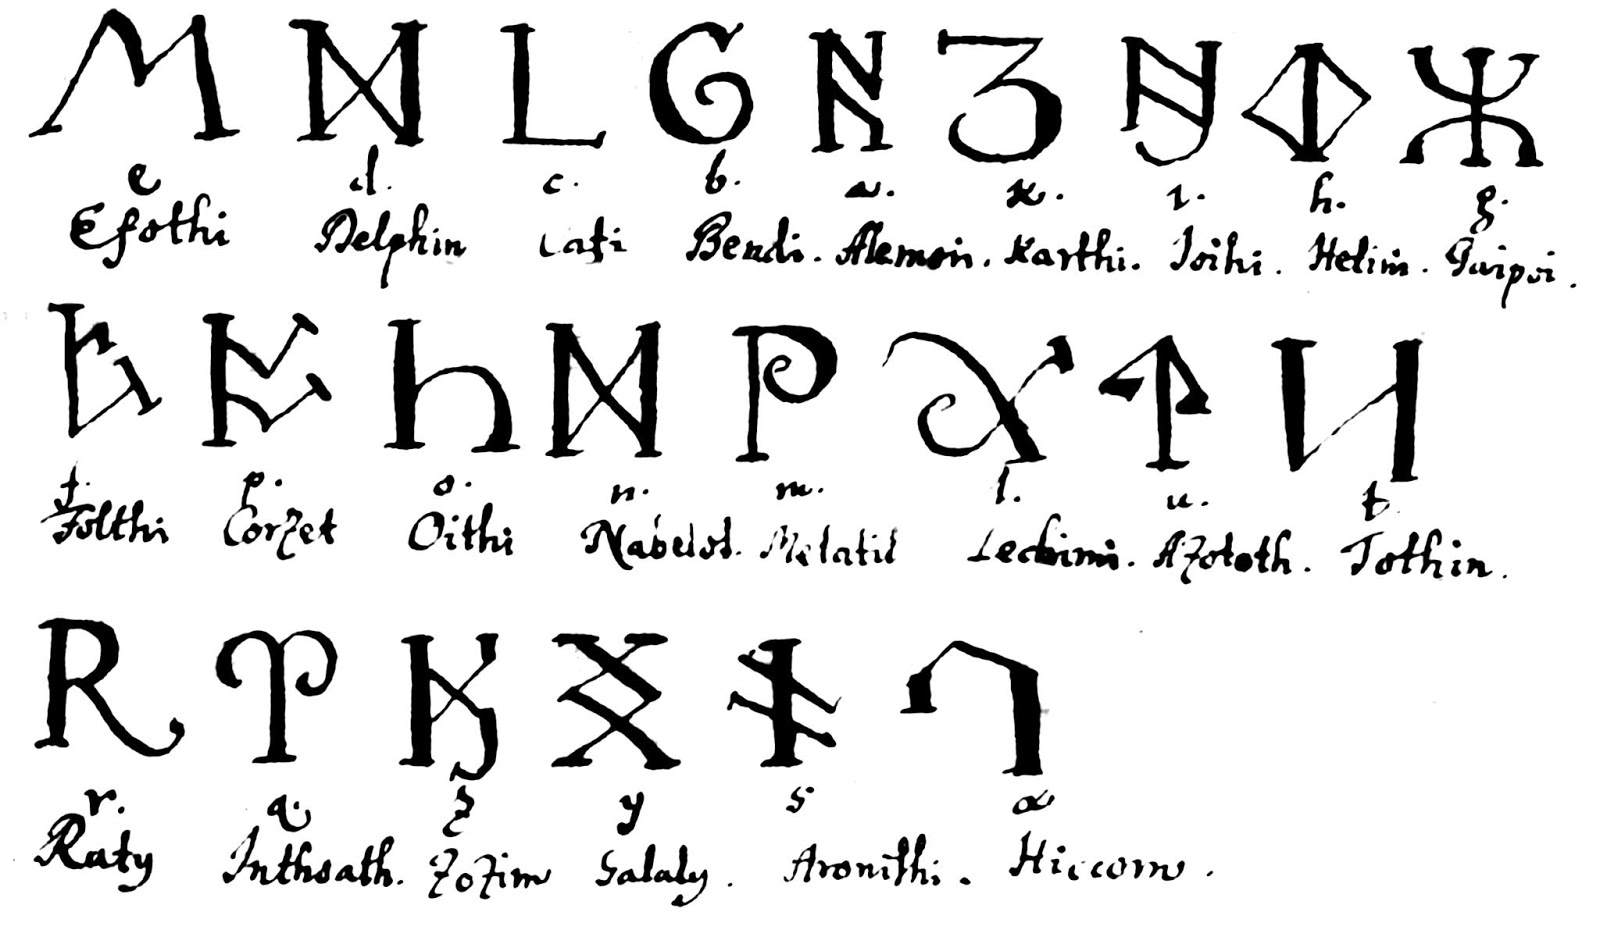 e d. c. b. a. k. 1. h. g.
Efothi Delphin Cati Bendi. Alemon. Karthi. Joihi. Helim. Gaipoi.
f. p. o. n. m. l. u. t.
Folthi Corzet Oithi Nabelot. Melatil Lechimi. Azototh. Tothin.
r. q. z y s x
Raty Inthsath. Zozim Salaly. Aronithi. Hiccom.